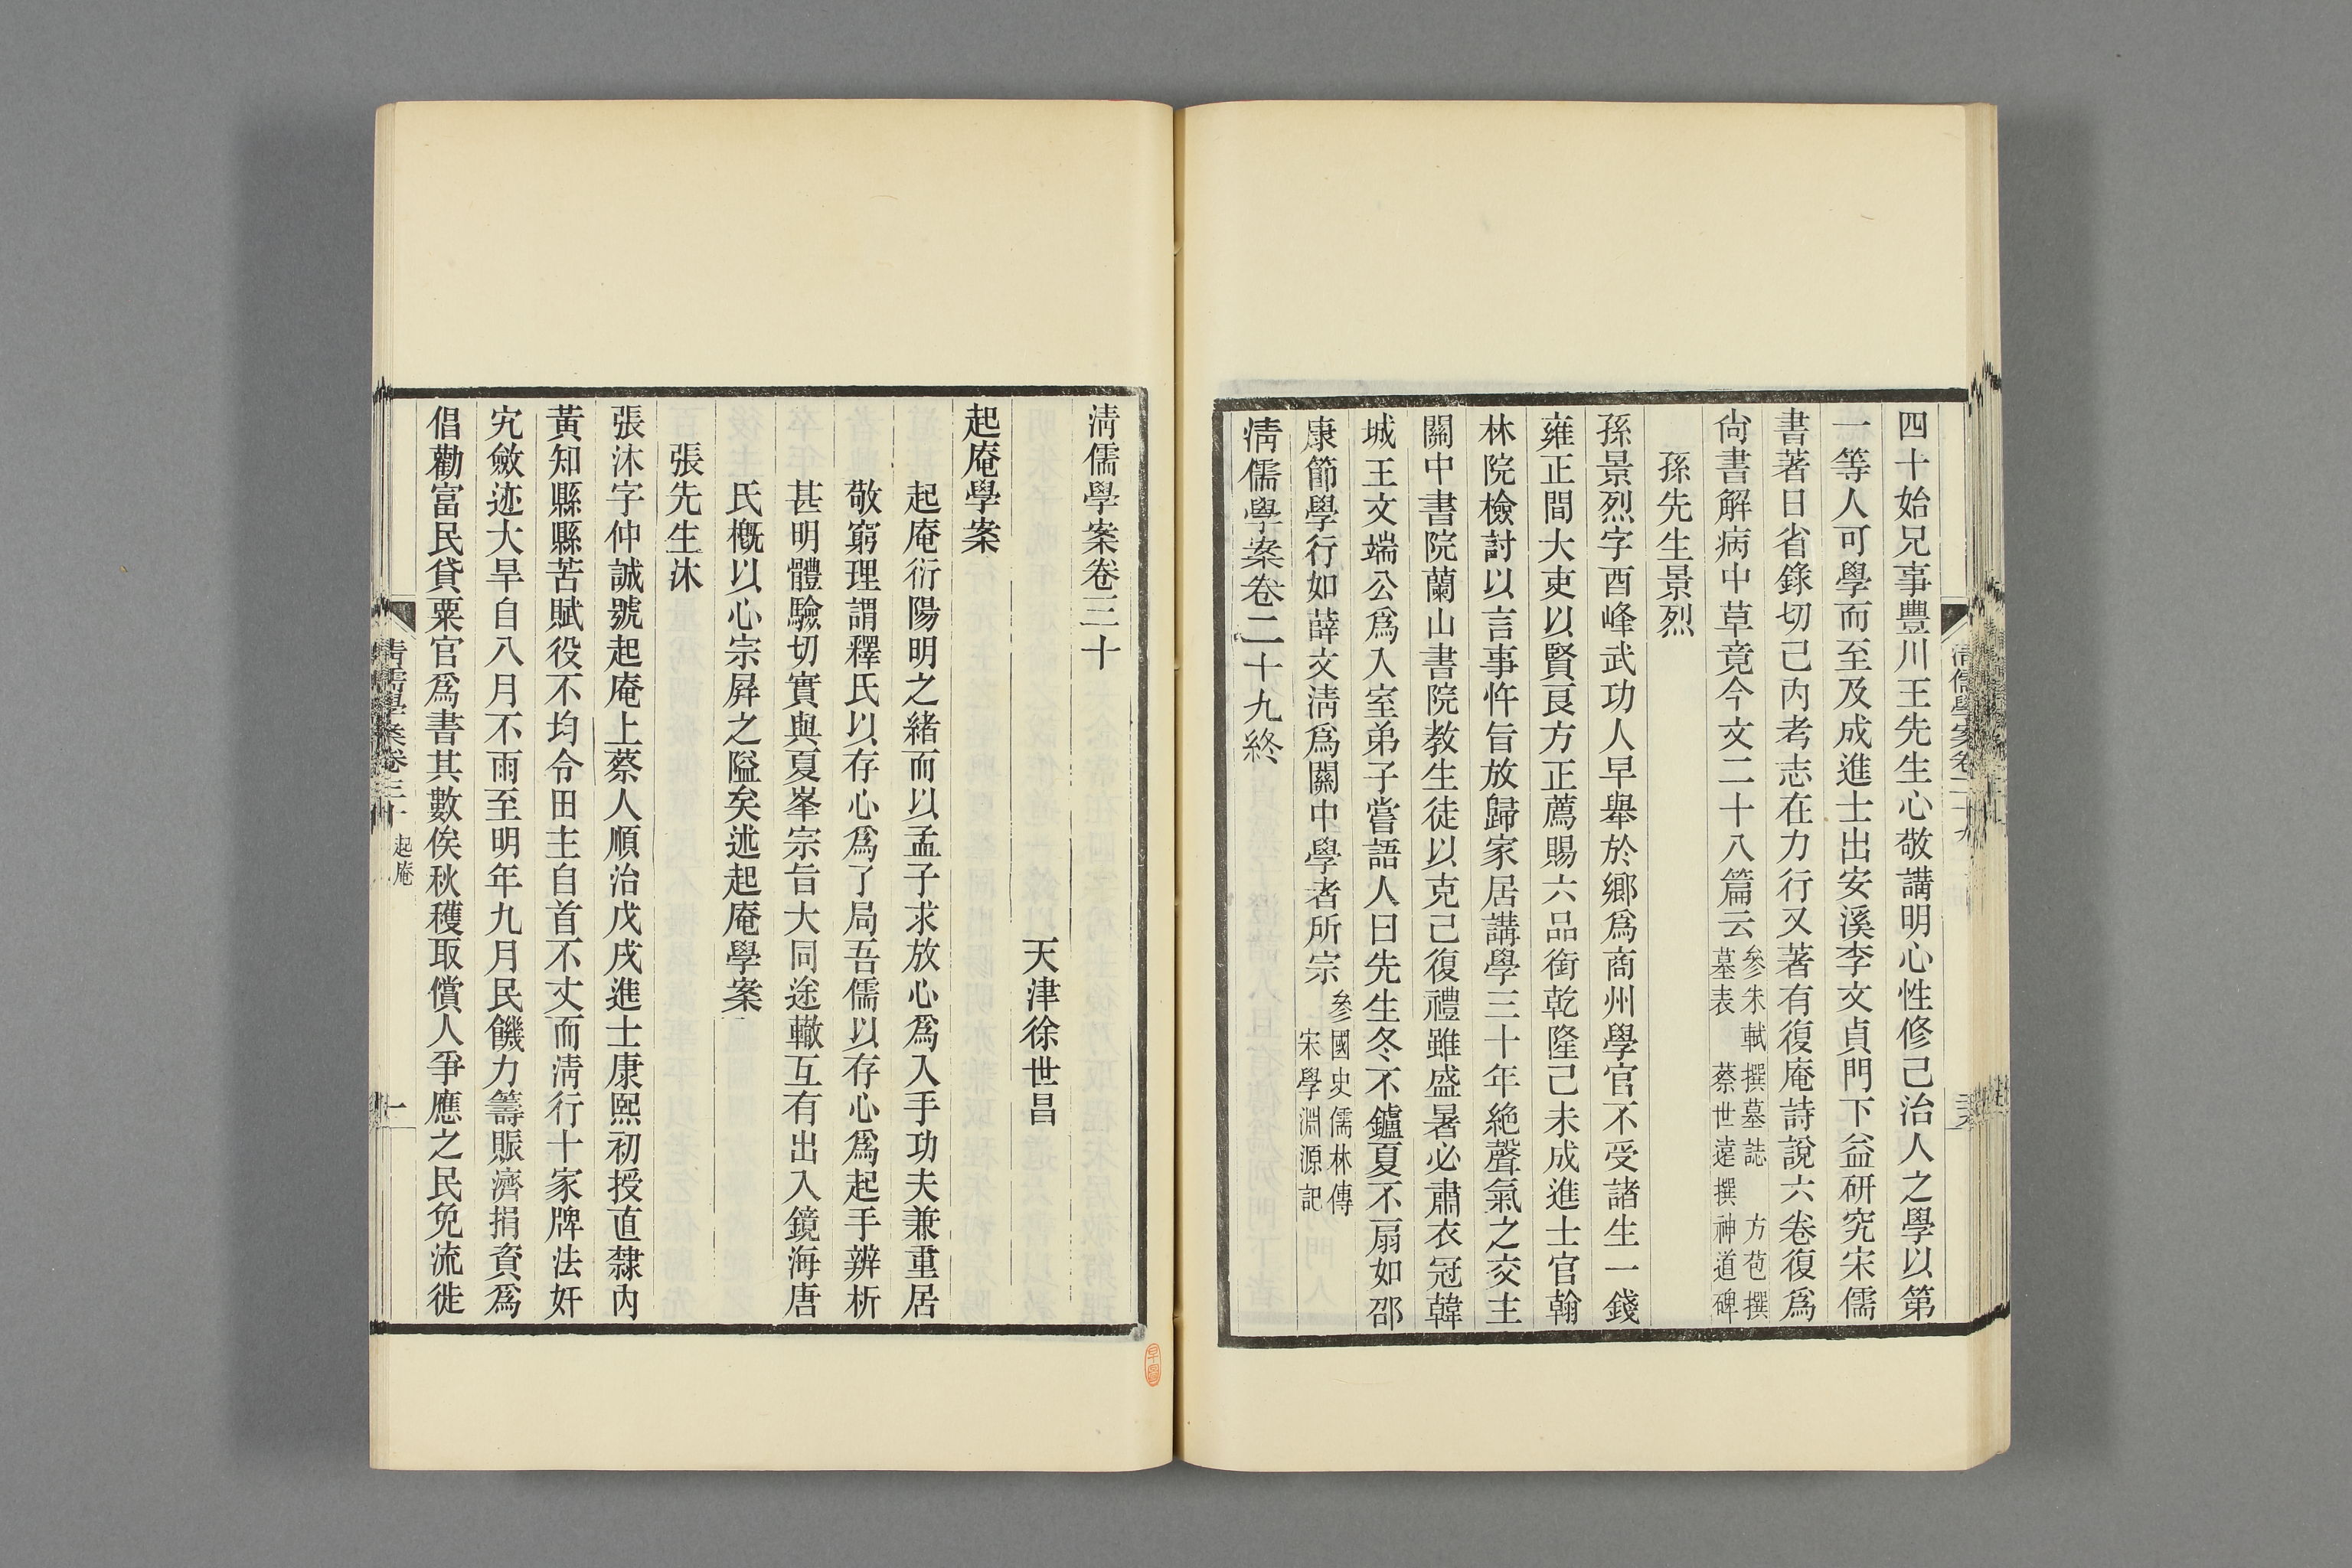 四十始兄事豐川王先生心敬講明心性修己治人之學以第
一等人可學而至及成進士出安溪李文貞門下益研究宋儒
書著日省錄切己內考志在力行又著有復庵詩說六卷復爲
尙書解病中草竟今文二十八篇云
參朱軾撰墓誌 方苞撰
墓表 蔡世遠撰神道碑
孫先生景烈
孫景烈字酉峰武功人早舉於鄉爲商州學官不受諸生一錢
雍正間大吏以賢良方正薦賜六品銜乾隆己未成進士官翰
林院檢討以言事忤旨放歸家居講學三十年絶聲氣之交主
關中書院蘭山書院教生徒以克己復禮雖盛暑必肅衣冠韓
城王文端公爲入室弟子嘗語人曰先生冬不鑪夏不扇如邵
康節學行如薛文淸爲關中學者所宗
參國史儒林傳
宋學淵源記
淸儒學案卷二十九終
淸儒學案卷三十
天津徐世昌
起庵學案
起庵衍陽明之緒而以孟子求放心爲入手功夫兼重居
敬窮理謂釋氏以存心爲了局吾儒以存心爲起手辨析
甚明體驗切實與夏峯宗旨大同途轍互有出入鏡海唐
氏槪以心宗屛之隘矣述起庵學案
張先生沐
張沐字仲誠號起庵上蔡人順治戊戌進士康熙初授直隸內
黃知縣縣苦賦役不均令田主自首不丈而淸行十家牌法奸
宄斂迹大旱自八月不雨至明年九月民饑力籌賑濟捐資爲
倡勸富民貸粟官爲書其數俟秋穫取償人爭應之民免流徙
淸儒學案卷三十
起庵
一